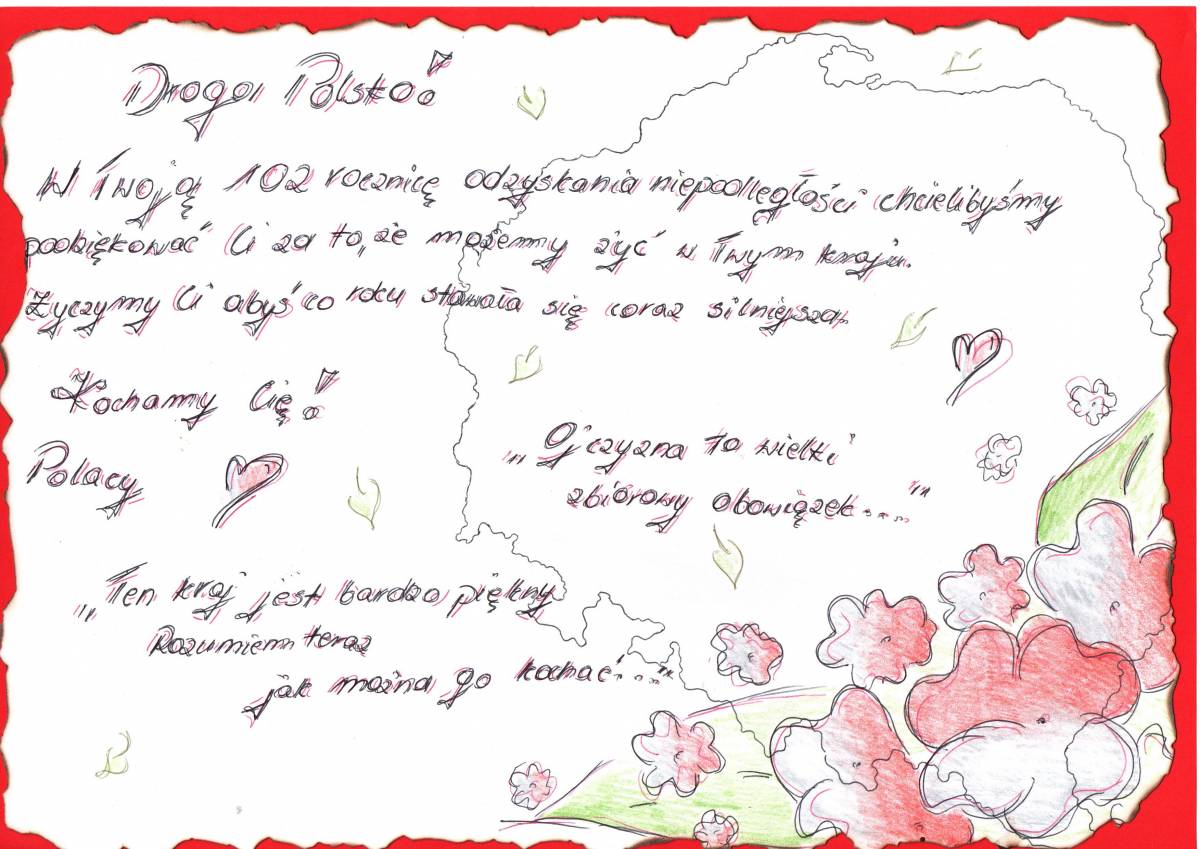 Droga Polsko!
W Twoją 102 rocznicę odzyskania niepodległości chcielibyśmy
podziękować Ci za to, że możemy żyć w Twym kraju.
Życzymy Ci abyś co roku stawała się coraz silniejsza.
Kochamy Cię!
Polacy
„Ojczyzna to wielki
zbiorowy obowiązek...."
„Ten kraj jest bardzo piękny
Rozumiem teraz
jak można go kochać...."